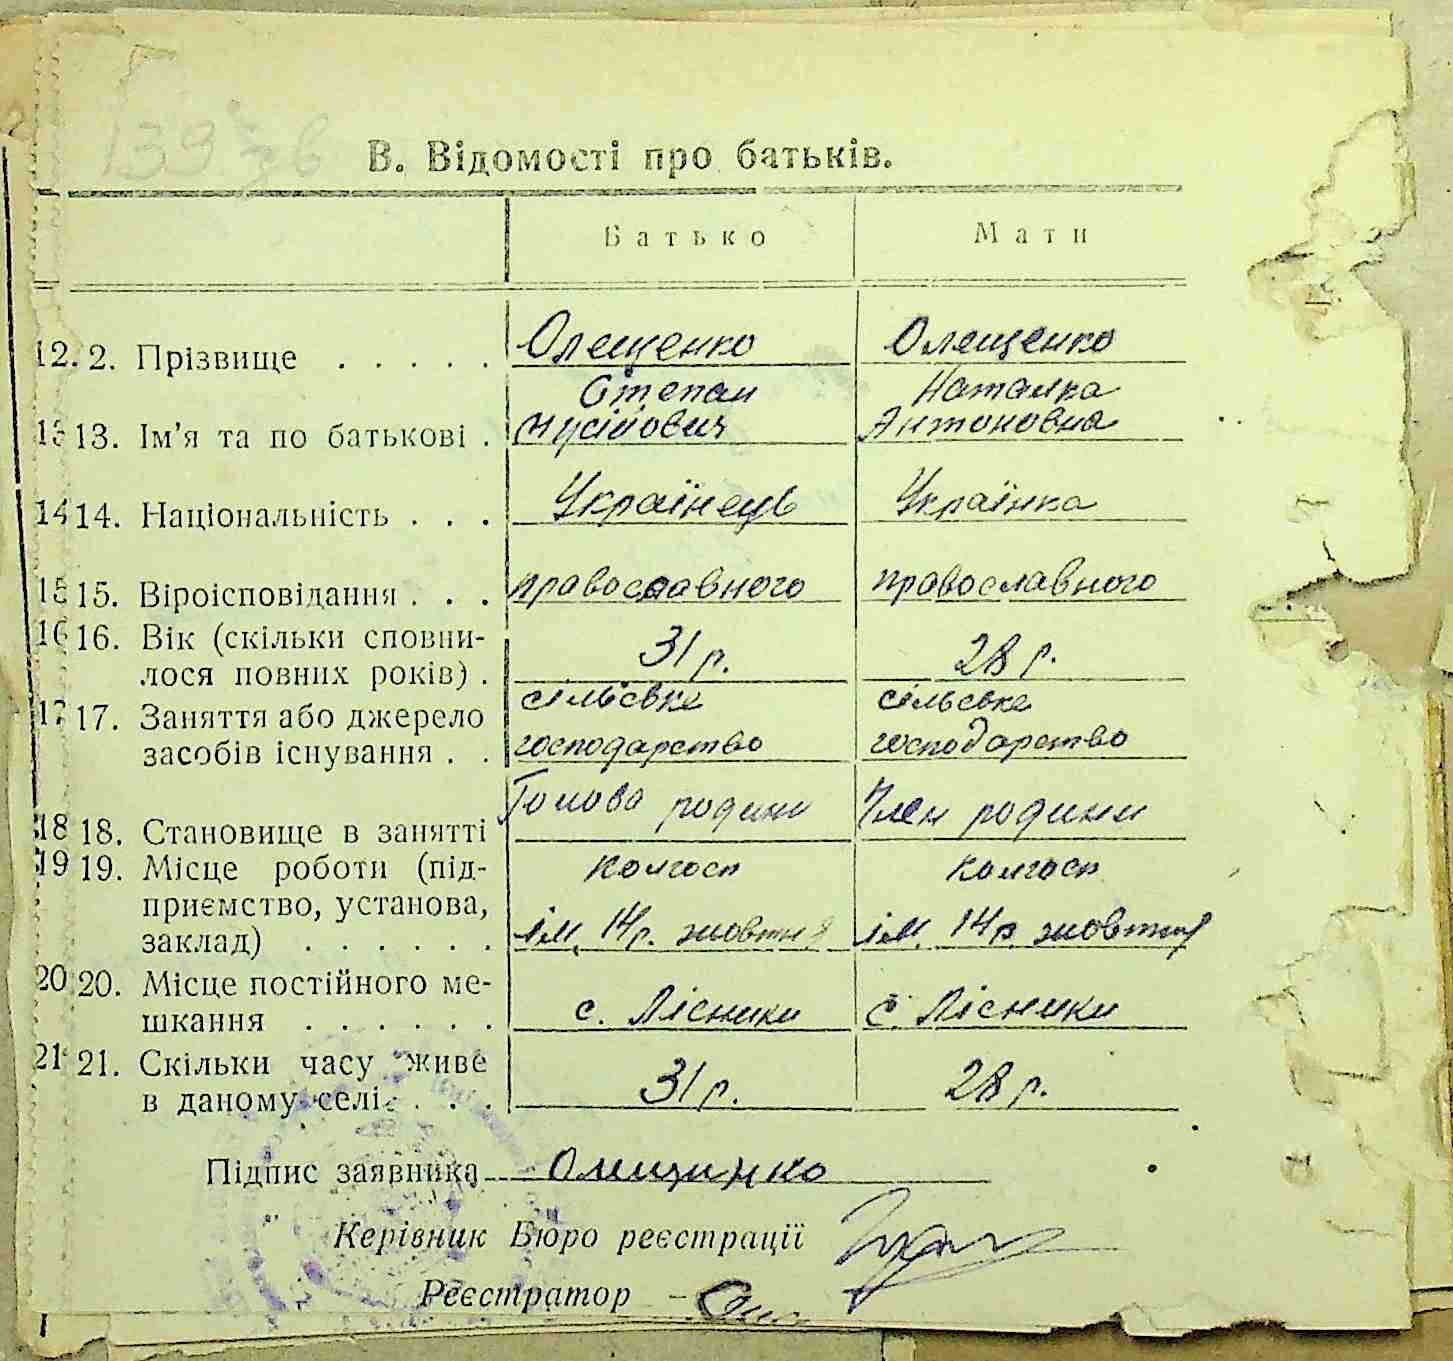 В. Відомості про батьків.
Батько Мати
12. 2. Прізвище . . . . . Олещенко Олещенко
Степан Наталка
13 13. Ім'я та по батькові . Мусійович Антоновна
14 14. Національність . . . Українець Українка
15 15. Віроісповідання . . . православного православного
16 16. Вік (скільки сповни-
лося повних років) . 31 р. 28 р.
сільське сільське
17 17. Заняття або джерело
засобів існування . . господарство господарство
Голова родини Член родини
18 18. Становище в занятті
19 19. Місце роботи (під- колгосп колгосп
приємство, установа,
заклад) . . . . . . ім. 14 р. жовтня ім. 14 р. жовтня
20 20. Місце постійного ме-
шкання . . . . . . с. Лісники с. Лісники
21 21. Скільки часу живе
в даному селі . . . 31 р. 28 р.
Підпис заявника Олищинко
Керівник Бюро реєстрації
Реєстратор